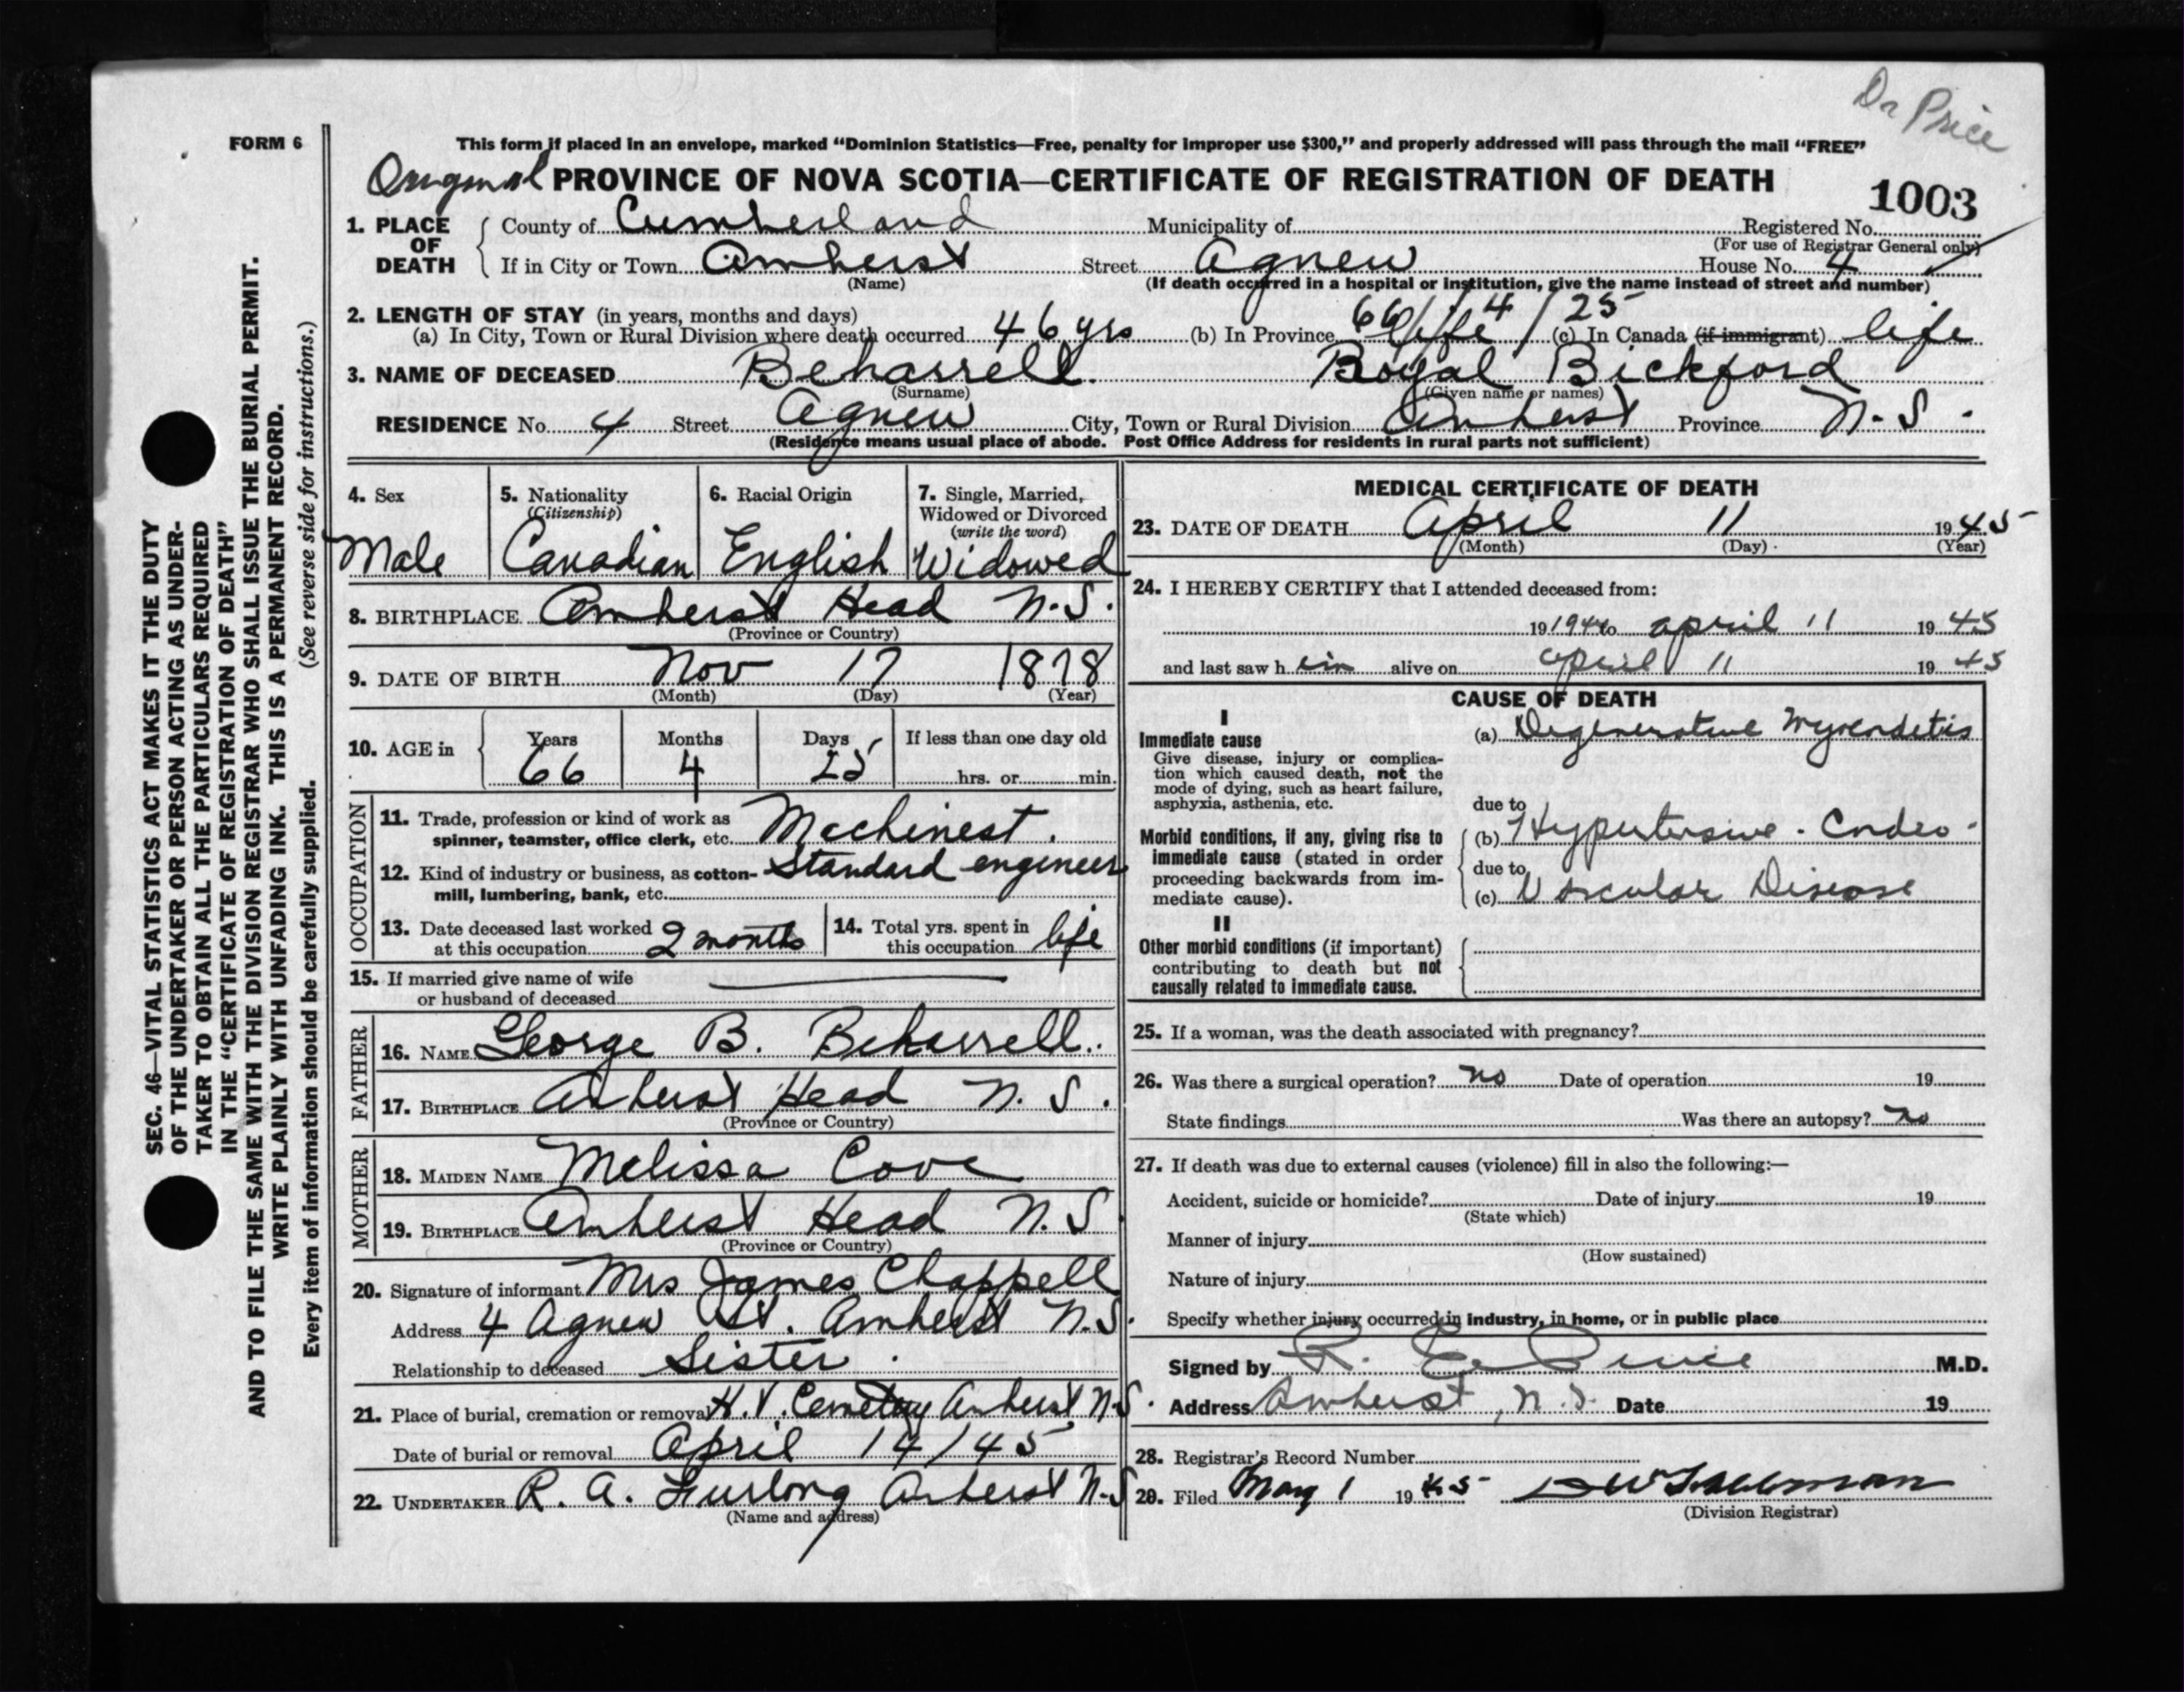 Dr Price
FORM 6
This form if placed in an envelope, marked "Dominion Statistics—Free, penalty for improper use $300," and properly addressed will pass through the mail "FREE"
Original PROVINCE OF NOVA SCOTIA—CERTIFICATE OF REGISTRATION OF DEATH
1003
1. PLACE OF DEATH County of Cumberland Municipality of Registered No.
(For use of Registrar General only)
If in City or Town Amherst Street Agnew House No. 4
(Name) (If death occurred in a hospital or institution, give the name instead of street and number)
2. LENGTH OF STAY (in years, months and days) 66/4/25
(a) In City, Town or Rural Division where death occurred 46 yrs (b) In Province life (c) In Canada (if immigrant) life
3. NAME OF DECEASED Beharrell. Royal Bickford
(Surname) (Given name or names)
RESIDENCE No. 4 Street Agnew City, Town or Rural Division Amherst Province N.S.
(Residence means usual place of abode. Post Office Address for residents in rural parts not sufficient)
4. Sex Male
5. Nationality (Citizenship) Canadian
6. Racial Origin English
7. Single, Married, Widowed or Divorced (write the word) Widowed
8. BIRTHPLACE Amherst Head N.S.
(Province or Country)
9. DATE OF BIRTH Nov 17 1878
(Month) (Day) (Year)
10. AGE in Years Months Days If less than one day old
66 4 25 hrs. or min.
OCCUPATION
11. Trade, profession or kind of work as spinner, teamster, office clerk, etc. Mechinest.
12. Kind of industry or business, as cotton-mill, lumbering, bank, etc. Standard engineer
13. Date deceased last worked at this occupation 2 months
14. Total yrs. spent in this occupation life
15. If married give name of wife or husband of deceased
FATHER
16. NAME George B. Beharrell.
17. BIRTHPLACE Amherst Head N.S.
(Province or Country)
MOTHER
18. MAIDEN NAME Melissa Cove
19. BIRTHPLACE Amherst Head N.S.
(Province or Country)
20. Signature of informant Mrs James Chappell
Address 4 Agnew St. Amherst N.S.
Relationship to deceased Sister.
21. Place of burial, cremation or removal Cemetery Amherst N.S.
Date of burial or removal April 14/45
22. UNDERTAKER R. A. Furlong Amherst N.S
(Name and address)
MEDICAL CERTIFICATE OF DEATH
23. DATE OF DEATH April 11 1945
(Month) (Day) (Year)
24. I HEREBY CERTIFY that I attended deceased from:
19 1944 to april 11 1945
and last saw him alive on april 11 1945
CAUSE OF DEATH
I
Immediate cause
Give disease, injury or complication which caused death, not the mode of dying, such as heart failure, asphyxia, asthenia, etc.
(a) Degenerative Myocarditis
due to
Morbid conditions, if any, giving rise to immediate cause (stated in order proceeding backwards from immediate cause).
(b) Hypertensive - Cardio -
due to
(c) Vascular Disease
II
Other morbid conditions (if important) contributing to death but not causally related to immediate cause.
25. If a woman, was the death associated with pregnancy?
26. Was there a surgical operation? no Date of operation 19
State findings Was there an autopsy? no
27. If death was due to external causes (violence) fill in also the following:—
Accident, suicide or homicide? Date of injury 19
(State which)
Manner of injury
(How sustained)
Nature of injury
Specify whether injury occurred in industry, in home, or in public place
Signed by R. E. Price M.D.
Address Amherst, N.S. Date 19
28. Registrar's Record Number
29. Filed May 1 1945
(Division Registrar)
SEC. 46—VITAL STATISTICS ACT MAKES IT THE DUTY
OF THE UNDERTAKER OR PERSON ACTING AS UNDER-
TAKER TO OBTAIN ALL THE PARTICULARS REQUIRED
IN THE "CERTIFICATE OF REGISTRATION OF DEATH"
AND TO FILE THE SAME WITH THE DIVISION REGISTRAR WHO SHALL ISSUE THE BURIAL PERMIT.
WRITE PLAINLY WITH UNFADING INK. THIS IS A PERMANENT RECORD.
Every item of information should be carefully supplied. (See reverse side for instructions.)